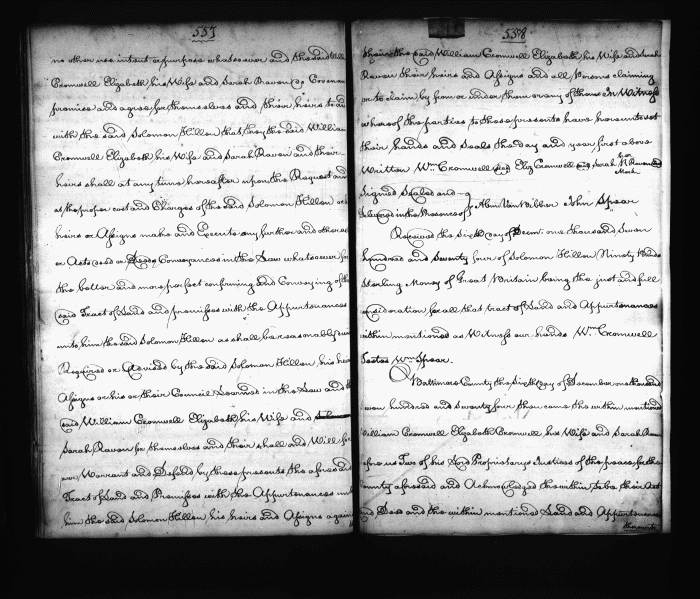 557
no other use intent or purpose whatsoever and the said
Cromwell Elizabeth his Wife and Sarah Raven do Covenant
promise and agree for themselves and their heirs to and
with the said Solomon Hillen that they the said William
Cromwell Elizabeth his Wife and Sarah Raven and their
heirs shall at any time hereafter upon the Request and
at the proper cost and Charges of the said Solomon Hillen
heirs or Assigns make and Execute any further and other
or Acts Deed or Deeds Conveyances in the Law whatsoever for
the better and more perfect confirming and Conveying of the
said Tract of Land and premises with the Appurtenances
unto him the said Solomon Hillen as shall be reasonably
Required or Advised by the said Solomon Hillen his heirs
Assigns or his or their Council Learned in the Law and
said William Cromwell Elizabeth his Wife and
Sarah Raven for themselves and their shall and Will for
Warrant and Defend by these presents the aforesaid
Tract of Land and Premises with the Appurtenances
him the said Solomon Hillen his heirs and Assigns again
558
the said William Cromwell Elizabeth his Wife and Sarah
Raven their heirs and Assigns and all Persons claiming
or to claim by from or under them or any of them In Witness
whereof the parties to these presents have hereunto set
their hands and Seals the day and year first above
Written Wm Cromwell Eliz Cromwell Sarah Raven
her
Mark
Signed Sealed and
Delivered in the Presence of
Abm Van Bibber John Spear
Received the Sixth day of Decemr one thousand Seven
hundred and Seventy four of Solomon Hillen Ninety Pounds
Sterling Money of Great Britain being the just and full
consideration for all that tract of Land and Appurtenances
within mentioned as Witness our hands Wm Cromwell
Testes Wm Spear.
Baltimore County the Sixth day of December one thousand
seven hundred and Seventy four then came the within mentioned
William Cromwell Elizabeth Cromwell his Wife and Sarah
before us Two of his Lord Proprietarys Justices of the peace for the
County aforesaid and Acknowledged the within to be their Act
and Deed and the within mentioned Land and Appurtenances
thereunto